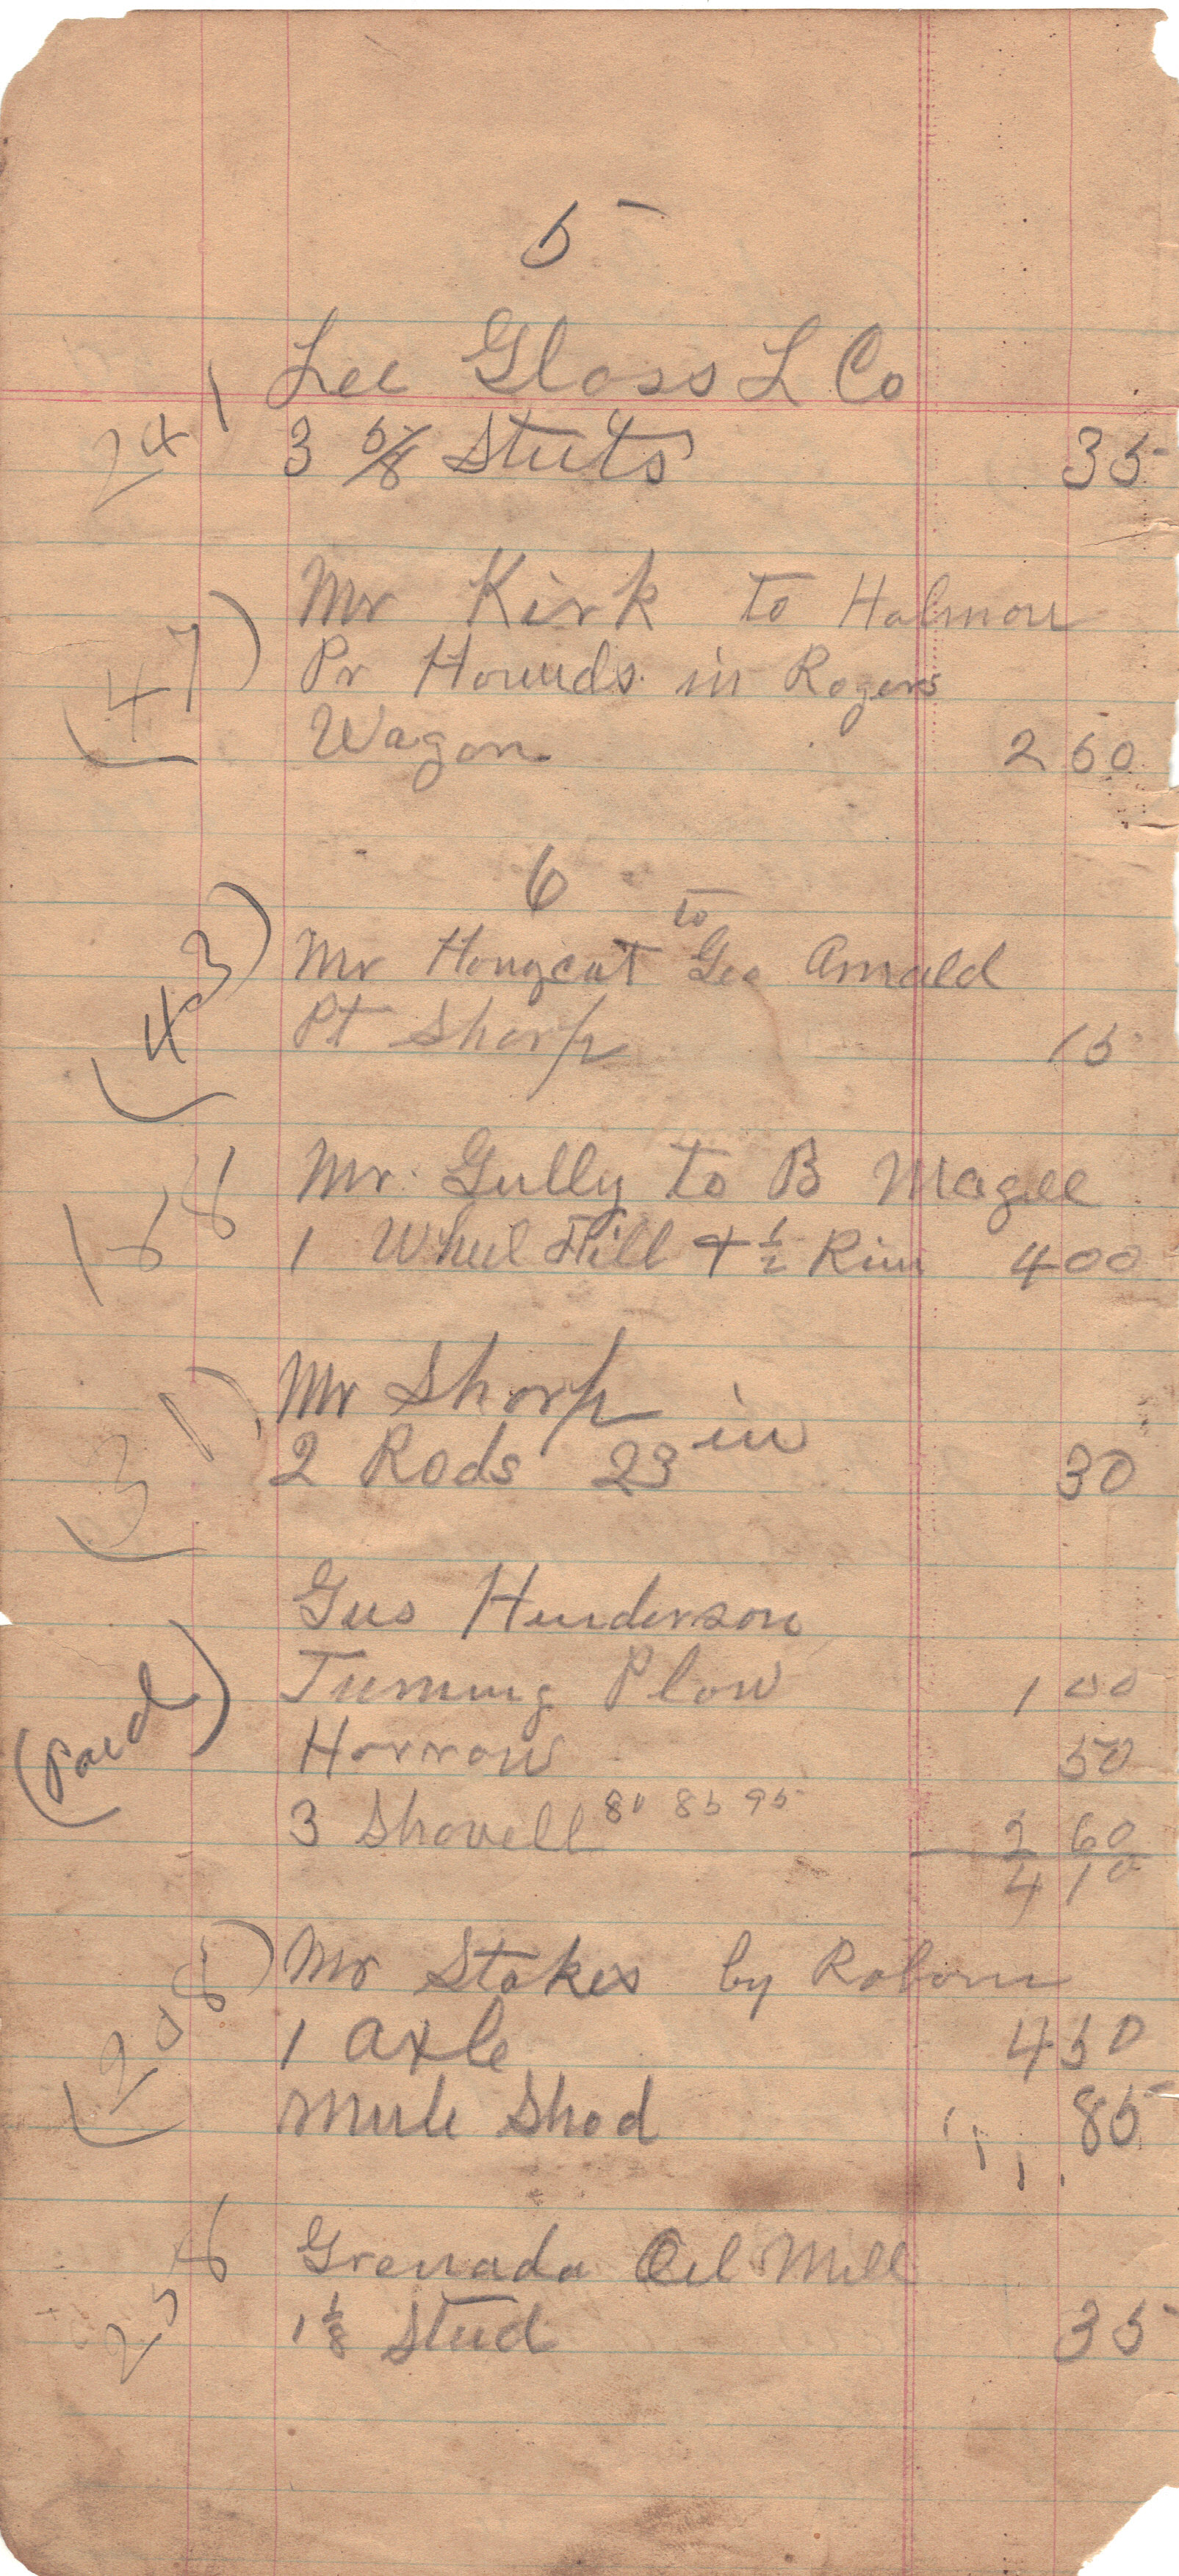 5
241 Lee Gloss L Co
3 5/8 Stuts 35
Mr Kirk to Holmon
(47) Pr Hounds in Rogers
Wagon 2 50
6
(43) Mr Hongcut to Geo Arnold
Pt Sharp 15
Mr. Gully to B Magee
1 Wheel Fill + 1/2 Rim 4 00
Mr Sharp
(31) 2 Rods 23 in 30
Gus Henderson
Turning Plow 1 00
(Paid) Horrow 50
3 Shovell 80 85 95 2 60
4 10
Mr Stokes by
(208) 1 axle 4 50
Mule Shod 85
Grenada Oil Mill
1 1/8 Stud 35